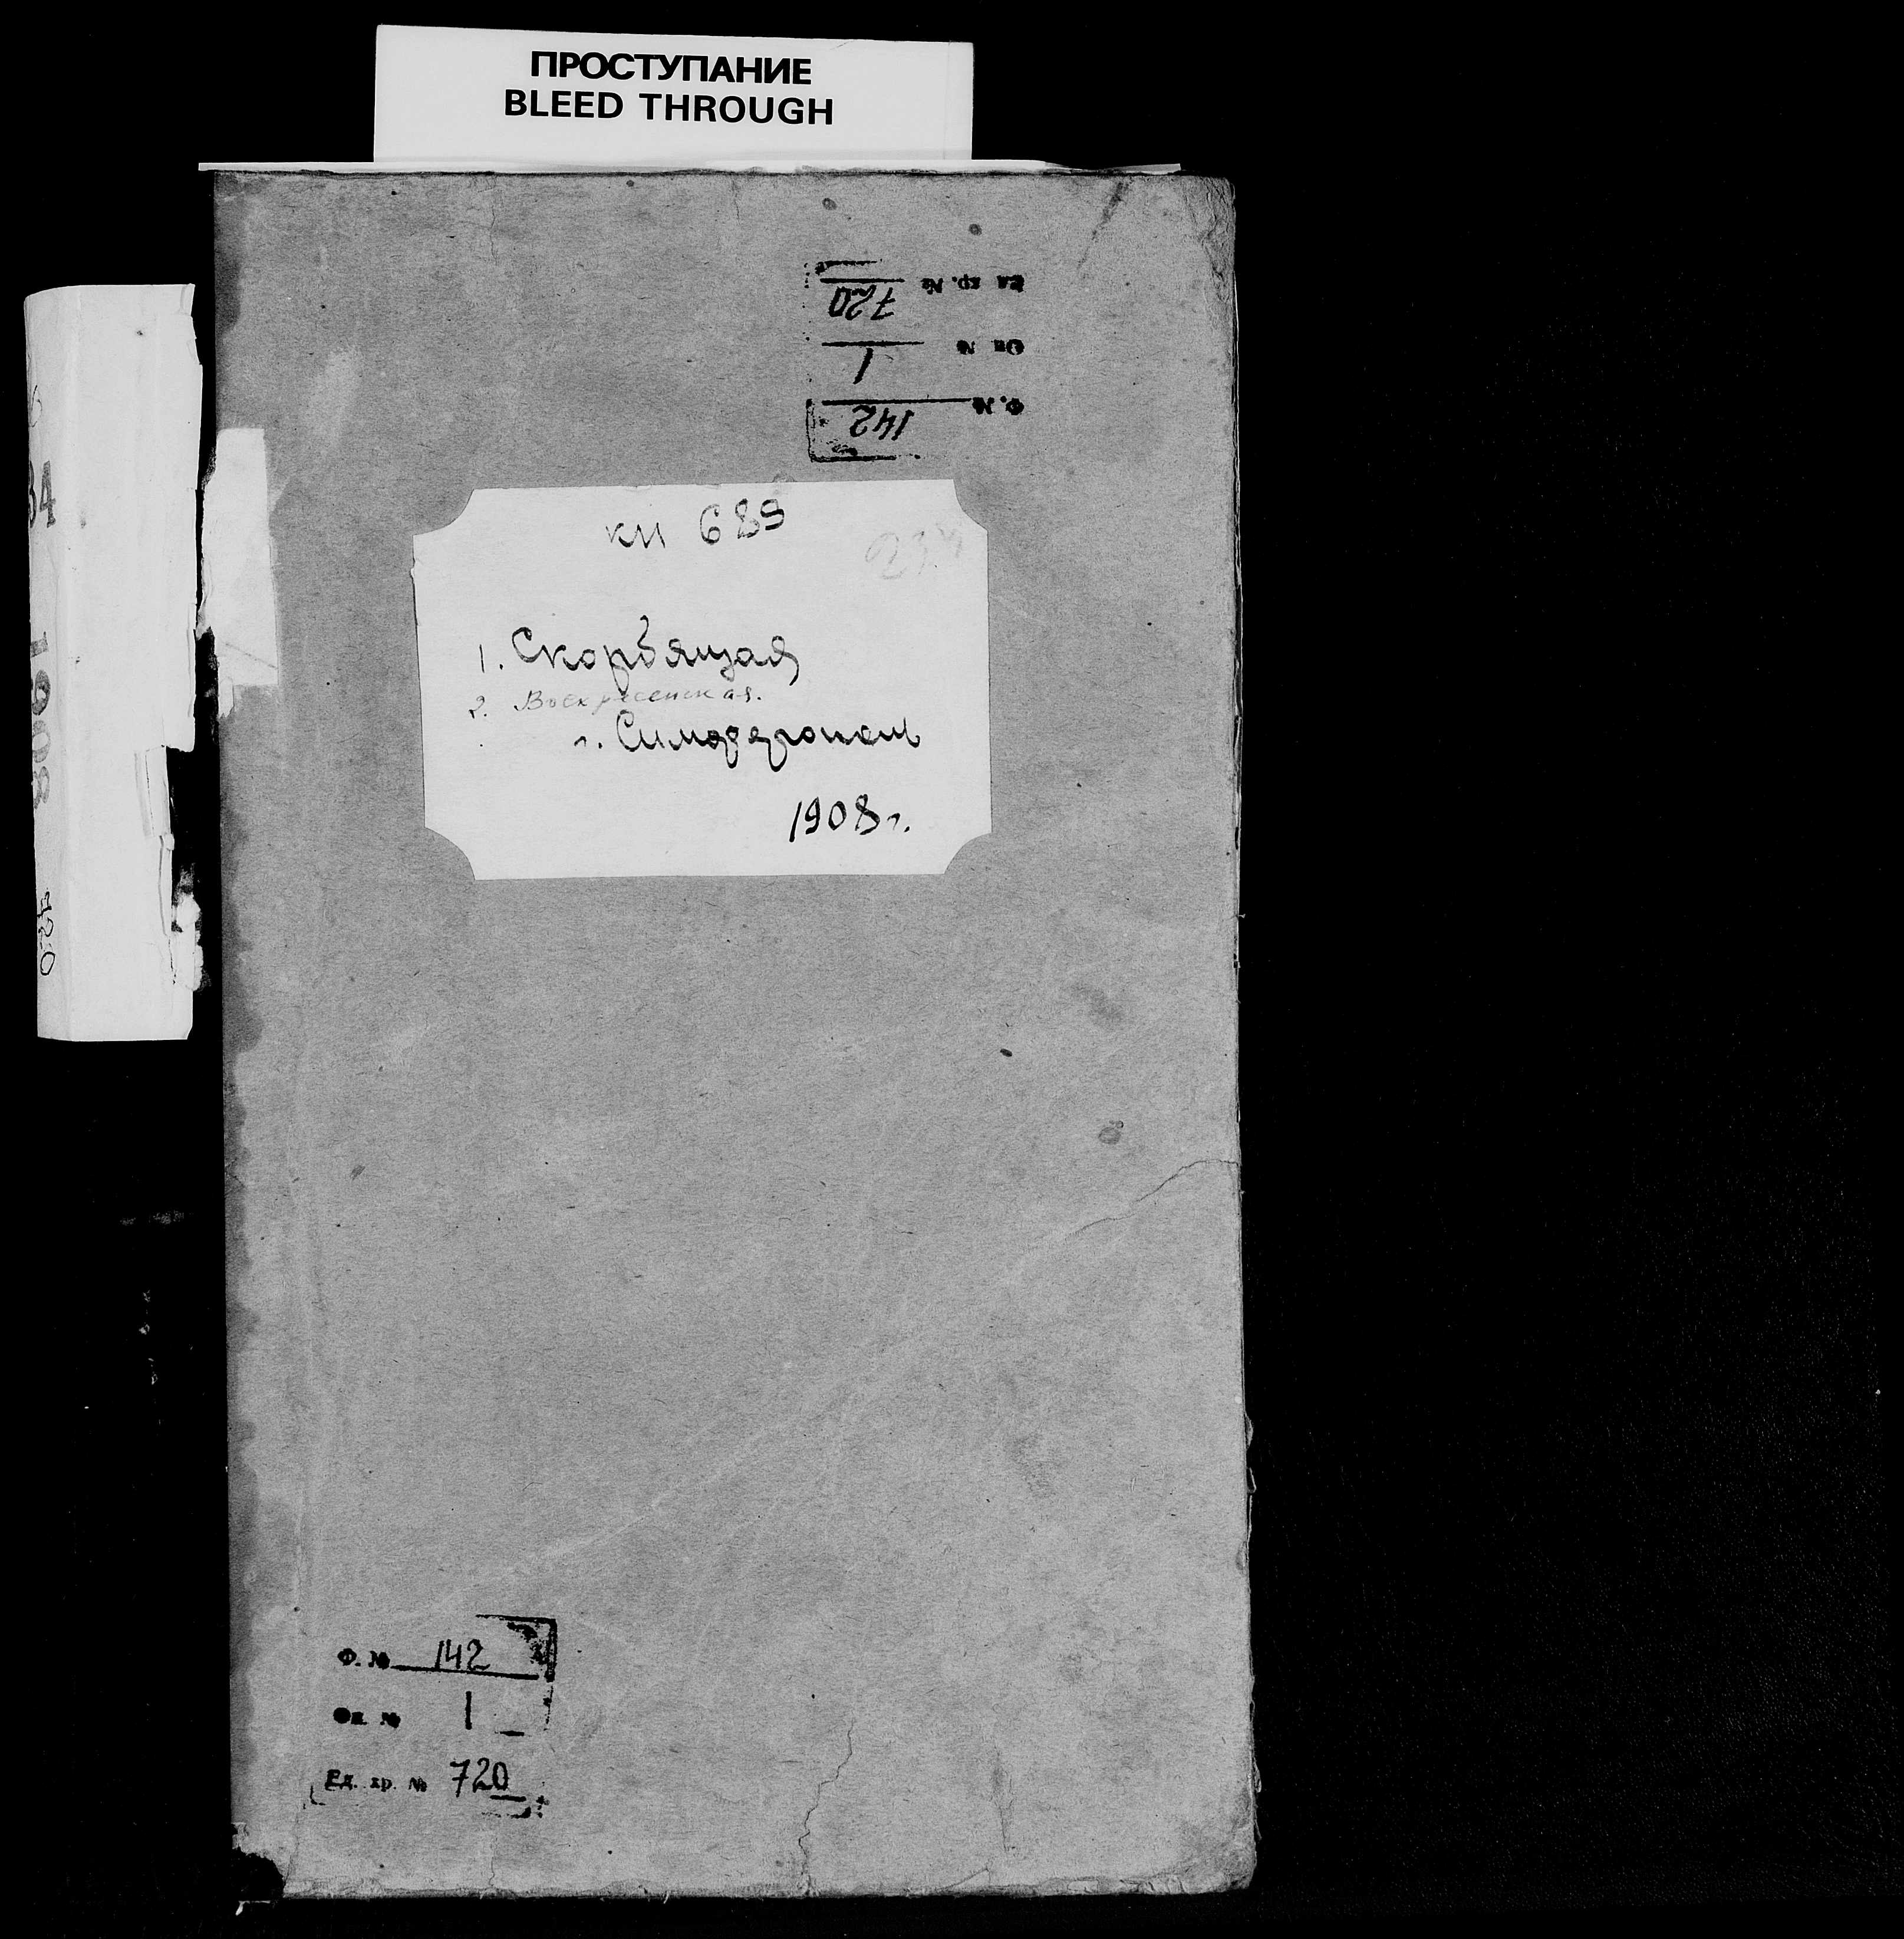 ПРОСТУПАНИЕ
BLEED THROUGH
Ед. хр. № 720
Оп. № 1
Ф. № 142
кн 689
1. Скорбящая
2. Воскресенская.
г. Симферополь
1908 г.
34
1908
720
Ф. № 142
Оп. № 1
Ед. хр. № 720